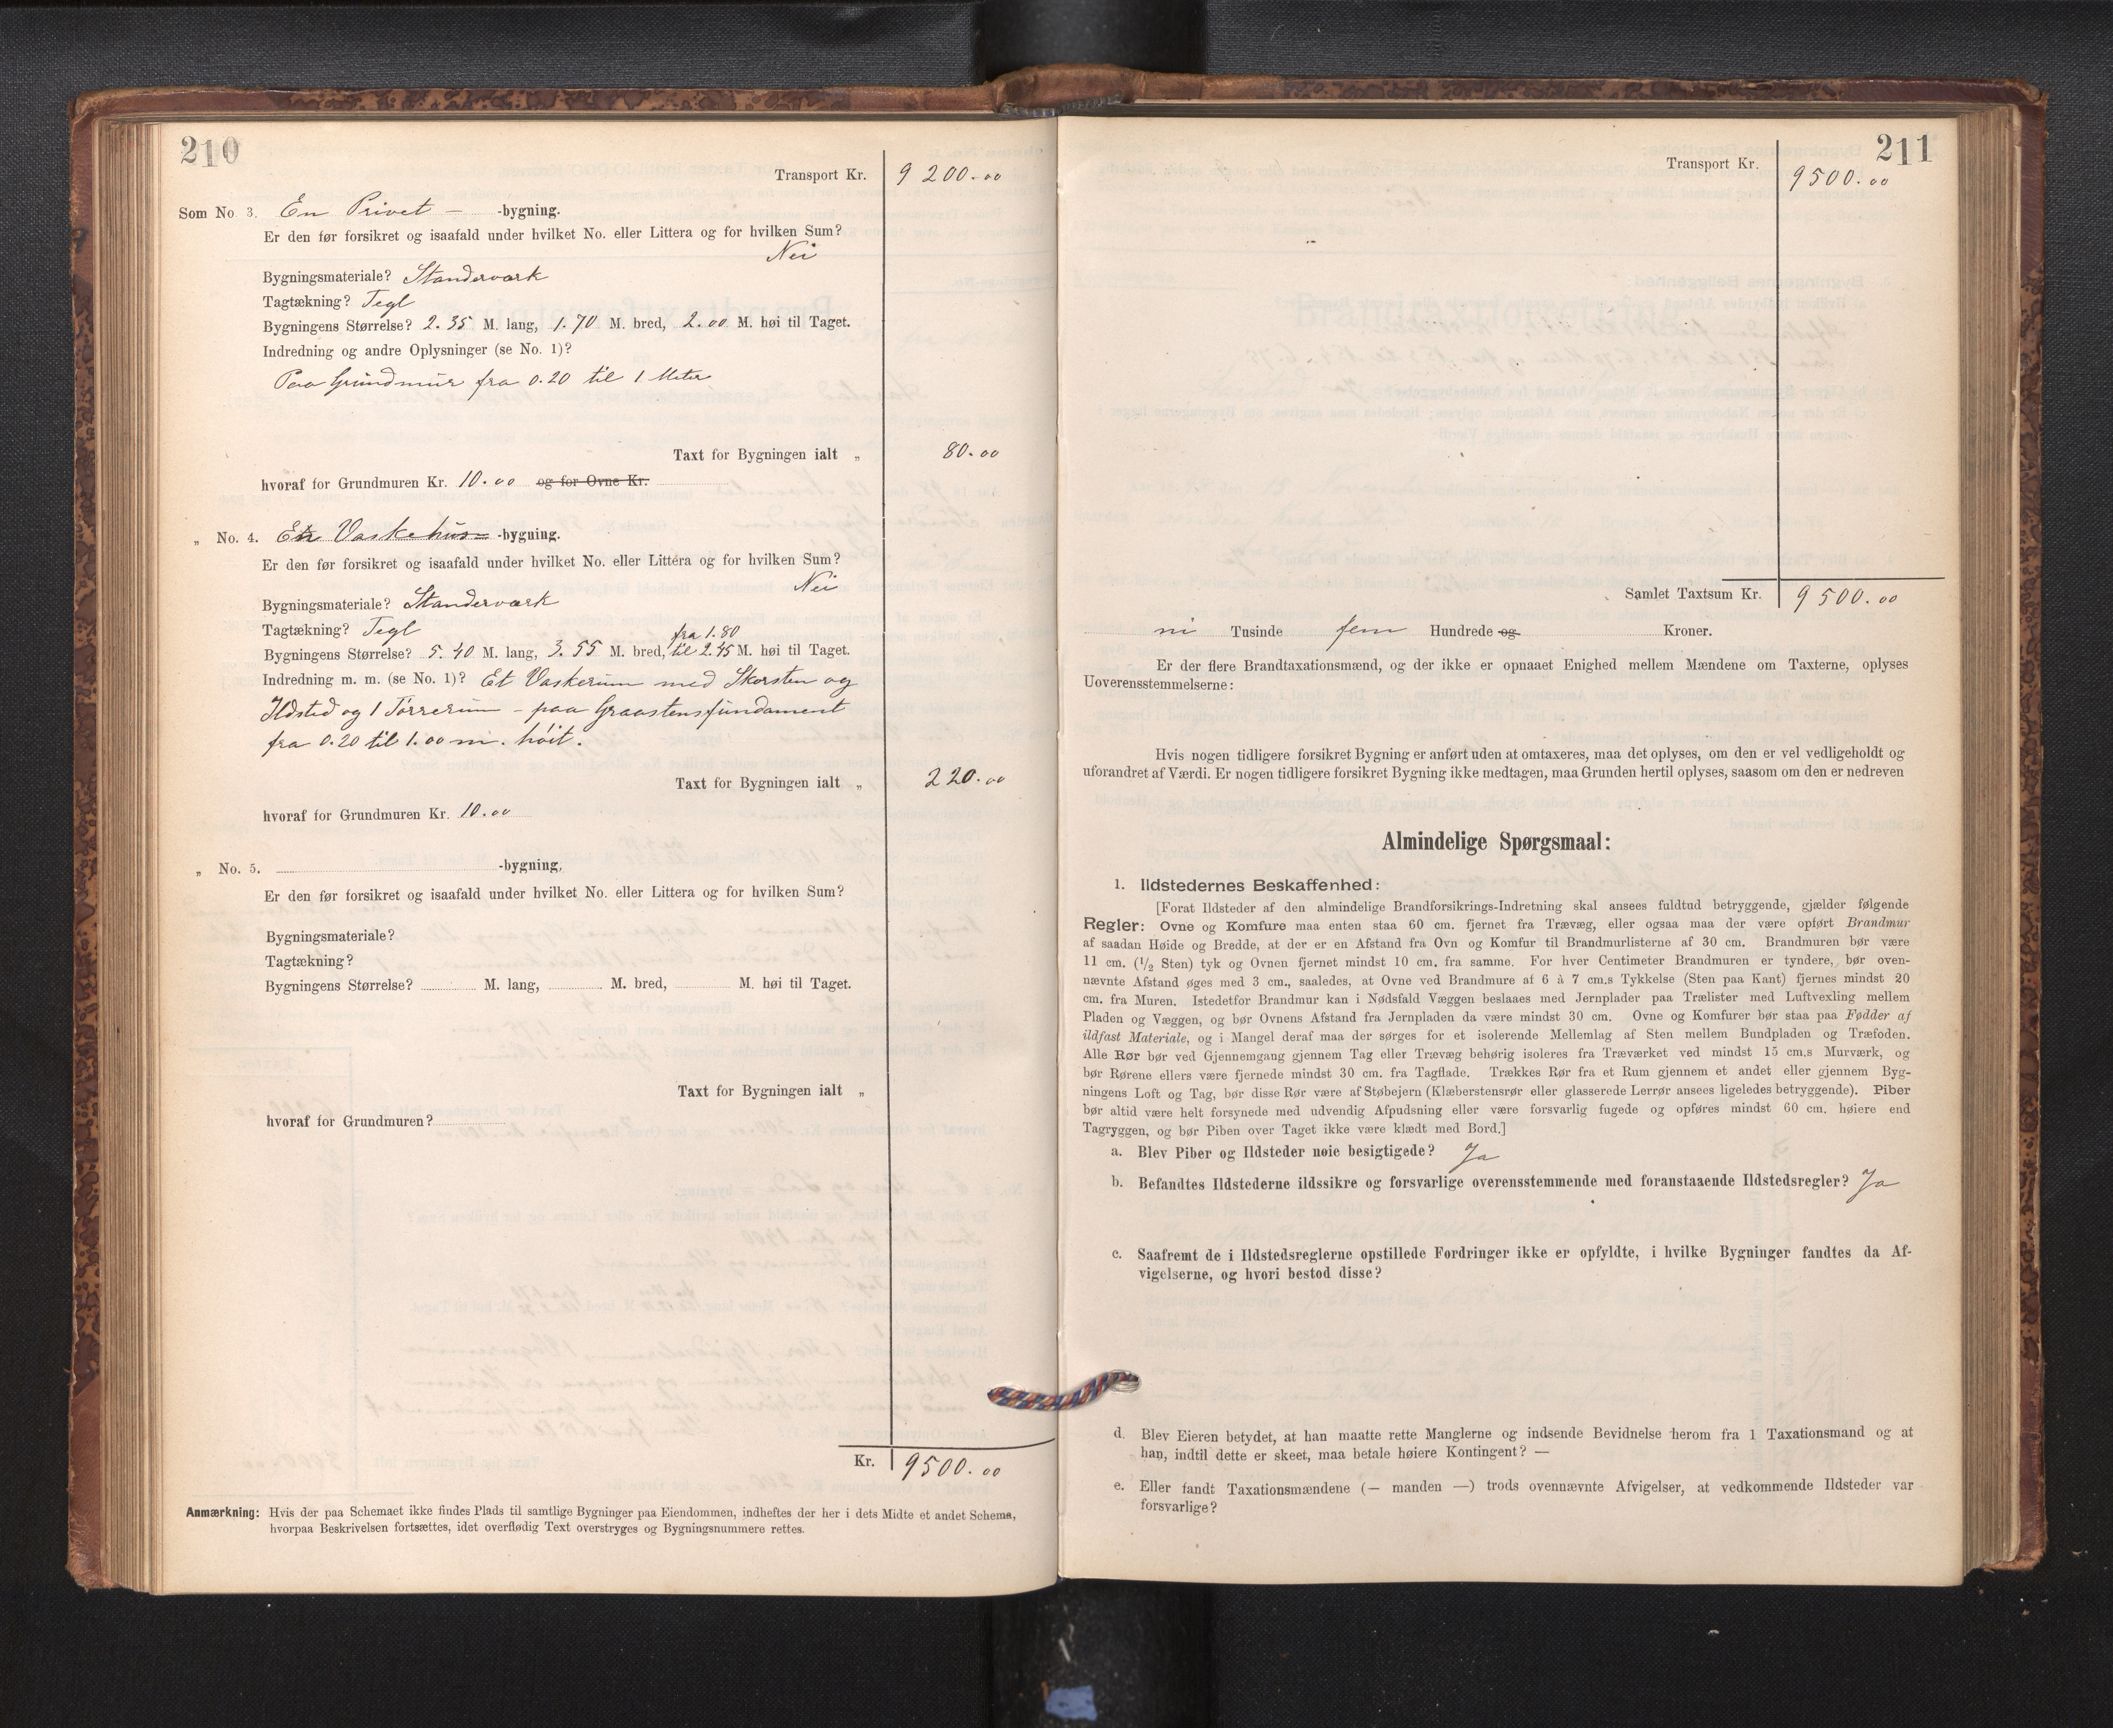 210
Transport Kr. 9 200.00
Som No. 3. En Privet -bygning.
Er den før forsikret og isaafald under hvilket No. eller Littera og for hvilken Sum?
Nei
Bygningsmateriale? Standerværk
Tagtækning? Tegl
Bygningens Størrelse? 2.35 M. lang, 1.70 M. bred, 2.00 M. høi til Taget.
Indredning og andre Oplysninger (se No. 1)?
Paa Grundmur fra 0.20 til 1 Meter
Taxt for Bygningen ialt „ 80.00
hvoraf for Grundmuren Kr. 10.00 og for Ovne Kr.
„ No. 4. Et Vaskehus -bygning.
Er den før forsikret og isaafald under hvilket No. eller Littera og for hvilken Sum?
Nei
Bygningsmateriale? Standerværk
Tagtækning? Tegl
fra 1.80
Bygningens Størrelse? 5.40 M. lang, 3.55 M. bred, til 2.45 M. høi til Taget.
Indredning m. m. (se No. 1)? Et Vaskerum med Skorsten og
Ildsted og 1 Tørrerum – paa Graastensfundament
fra 0.20 til 1.00 m. høit.
Taxt for Bygningen ialt „ 220.00
hvoraf for Grundmuren Kr. 10.00
„ No. 5. -bygning,
Er den før forsikret og isaafald under hvilket No. eller Littera og for hvilken Sum?
Bygningsmateriale?
Tagtækning?
Bygningens Størrelse? M. lang, M. bred, M. høi til Taget.
Taxt for Bygningen ialt „
hvoraf for Grundmuren?
Kr. 9500.00
Anmærkning: Hvis der paa Schemaet ikke findes Plads til samtlige Bygninger paa Eiendommen, indheftes der her i dets Midte et andet Schema,
hvorpaa Beskrivelsen fortsættes, idet overflødig Text overstryges og Bygningsnummere rettes.
211
Transport Kr. 9500.00
Samlet Taxtsum Kr. 9 500.00
ni Tusinde fem Hundrede og Kroner.
Er der flere Brandtaxationsmænd, og der ikke er opnaaet Enighed mellem Mændene om Taxterne, oplyses
Uoverensstemmelserne:
Hvis nogen tidligere forsikret Bygning er anført uden at omtaxeres, maa det oplyses, om den er vel vedligeholdt og
uforandret af Værdi. Er nogen tidligere forsikret Bygning ikke medtagen, maa Grunden hertil oplyses, saasom om den er nedreven
Almindelige Spørgsmaal:
1. Ildstedernes Beskaffenhed:
[Forat Ildsteder af den almindelige Brandforsikrings-Indretning skal ansees fuldtud betryggende, gjælder følgende
Regler: Ovne og Komfure maa enten staa 60 cm. fjernet fra Trævæg, eller ogsaa maa der være opført Brandmur
af saadan Høide og Bredde, at der er en Afstand fra Ovn og Komfur til Brandmurlisterne af 30 cm. Brandmuren bør være
11 cm. (1/2 Sten) tyk og Ovnen fjernet mindst 10 cm. fra samme. For hver Centimeter Brandmuren er tyndere, bør oven-
nævnte Afstand øges med 3 cm., saaledes, at Ovne ved Brandmure af 6 à 7 cm.s Tykkelse (Sten paa Kant) fjernes mindst 20
cm. fra Muren. Istedetfor Brandmur kan i Nødsfald Væggen beslaaes med Jernplader paa Trælister med Luftvexling mellem
Pladen og Væggen, og bør Ovnens Afstand fra Jernpladen da være mindst 30 cm. Ovne og Komfurer bør staa paa Fødder af
ildfast Materiale, og i Mangel deraf maa der sørges for et isolerende Mellemlag af Sten mellem Bundpladen og Træfoden.
Alle Rør bør ved Gjennemgang gjennem Tag eller Trævæg behørig isoleres fra Træværket ved mindst 15 cm.s Murværk, og
bør Rørene ellers være fjernede mindst 30 cm. fra Tagflade. Trækkes Rør fra et Rum gjennem et andet eller gjennem Byg-
ningens Loft og Tag, bør disse Rør være af Støbejern (Klæberstensrør eller glasserede Lerrør ansees ligeledes betryggende). Piber
bør altid være helt forsynede med udvendig Afpudsning eller være forsvarlig fugede og opføres mindst 60 cm. høiere end
Tagryggen, og bør Piben over Taget ikke være klædt med Bord.]
a. Blev Piber og Ildsteder nøie besigtigede? Ja
b. Befandtes Ildstederne ildssikre og forsvarlige overensstemmende med foranstaaende Ildstedsregler? Ja
c. Saafremt de i Ildstedsreglerne opstillede Fordringer ikke er opfyldte, i hvilke Bygninger fandtes da Af-
vigelserne, og hvori bestod disse?
d. Blev Eieren betydet, at han maatte rette Manglerne og indsende Bevidnelse herom fra 1 Taxationsmand og at
han, indtil dette er skeet, maa betale høiere Kontingent? —
e. Eller fandt Taxationsmændene (— manden —) trods ovennævnte Afvigelser, at vedkommende Ildsteder var
forsvarlige?